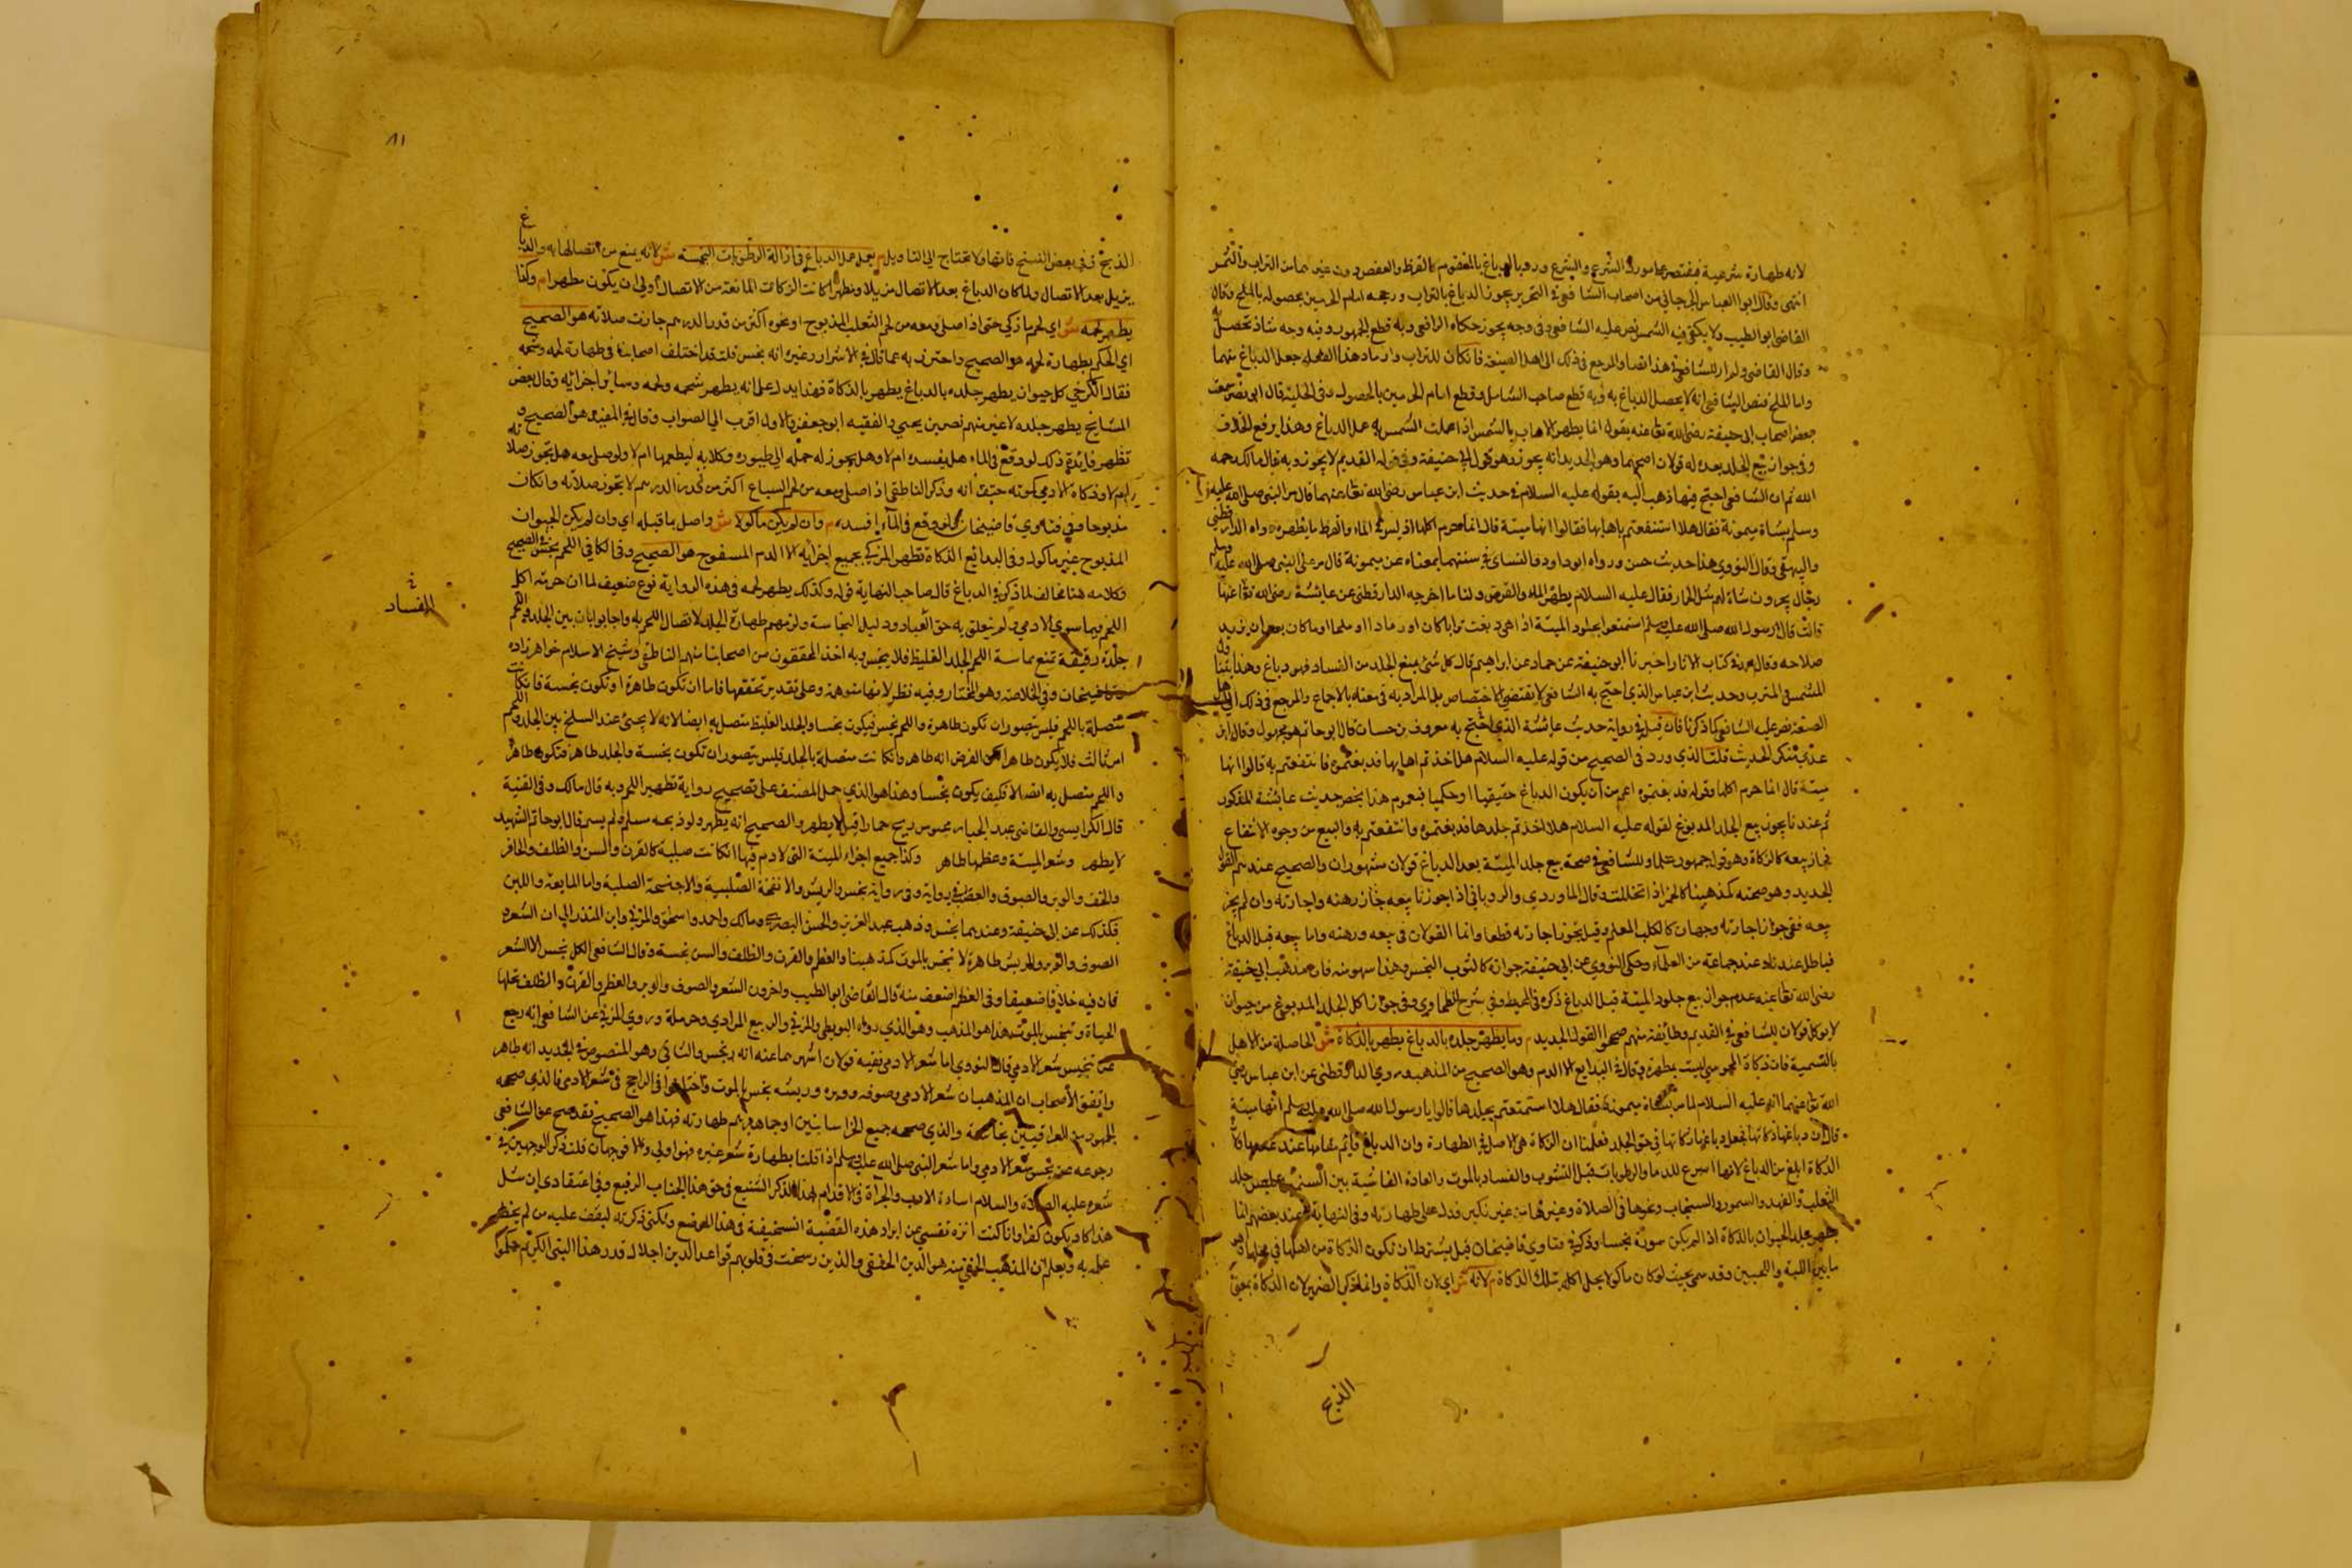 لانه طهارة شرعية فيقتصر بها مورد الشرع والشرع ورد بالدباغ بالمتقوم كالقرظ والعفص دون غيرهما من التراب والشمس
انتهى وقال ابوا العباس الجرجاني من اصحاب الشافعي في التحرير يجوز الدباغ بالتراب ورجحه امام الحرمين بحصوله بالملح وقال
القاضي ابو الطيب ولا يكفي فيه الشمس نص عليه الشافعي وفي وجه يجوز حكاه الرافعي وبه قطع الجمهور وفيه وجه شاذ تحصل به
وقال القاضي ولم ار للشافعي في هذا نصا والمرجع في ذلك الى اهل الصنعة فان كان للتراب والرماد هذا الفعل جعل الدباغ بهما
واما الملح فنص الشافعي انه لا يحصل الدباغ به وبه قطع صاحب الشامل وقطع امام الحرمين بالحصول وفي الحلية قال ابو نصر سمعت
بعض اصحاب ابي حنيفة رضي الله تعا عنه يقول انما يطهر الاهاب بالشمس اذا عملت الشمس به عمل الدباغ وهذا يرفع الخلاف
وفي جواز بيع الجلد بعده له قولان اصحهما وهو الجديد انه يجوز وهو قول ابي حنيفة وفي قوله القديم لا يجوز وبه قال مالك رحمه
الله ثم ان الشافعي احتج فيما ذهب اليه بقوله عليه السلام في حديث ابن عباس رضي الله تعا عنهما قال مر النبي صلى الله عليه
وسلم بشاة ميمونة فقال هلا استنفعتم باهابها فقالوا انها ميتة قال انما حرم اكلها اوليس في الماء والقرظ ما يطهره رواه الدارقطني
والبيهقي وقال النووي هذا حديث حسن ورواه ابو داود والنسائي في سننهما بمعناه عن ميمونة قال مر على النبي صلى الله عليه وسلم
رجال يجرون شاة لهم مثل الحمار فقال عليه السلام يطهره الماء والقرض ولنا ما اخرجه الدارقطني عن عائشة رضي الله تعا عنها
قالت قال رسول الله صلى الله عليه وسلم استمتعوا بجلود الميتة اذا هي دبغت ترابا كان او رمادا او ملحا او ما كان بعد ان يزيد
صلاحه وقال محمد في كتاب الاثار اخبرنا ابو حنيفة عن حماد عن ابراهيم قال كل شئ يمنع الجلد من الفساد فهو دباغ وهذا يتناول
المشمس والمترب وحديث ابن عباس الذي احتج به الشافعي لا يقتضي الاختصاص بل المراد به في معناه بالاجماع والمرجع في ذلك الى اهل
الصنعة نص عليه الشافعي كما ذكرنا فان قيل في رواية حديث عائشة الذي احتج به معروف بن حسان قال ابو حاتم هو مجهول وقال ابن
عدي منكر الحديث قلت الذي ورد في الصحيح من قوله عليه السلام هلا اخذتم اهابها فدبغتموه فانتفعتم به قالوا انها
ميتة قال انما حرم اكلها وقوله فدبغتموه اعم من ان يكون الدباغ حقيقيا او حكميا فبعموم هذا يخص حديث عائشة المذكور
ثم عندنا يجوز بيع الجلد المدبوغ لقوله عليه السلام هلا اخذتم جلدها فدبغتموه وانتفعتم به والبيع من وجوه الانتفاع
فجاز بيعه كالزكاة وهو قول جمهور العلما وللشافعي في صحة بيع جلد الميتة بعد الدباغ قولان مشهوران والصحيح عندهم القول
الجديد وهو صحته كمذهبنا كالخمر اذا تخللت وقال الماوردي والروياني اذا جوزنا بيعه جاز رهنه واجارته وان لم يجز
بيعه ففي جواز اجارته وجهان كالكلب المعلم وقيل يجوز اجارته قطعا وانما القولان في بيعه ورهنه واما بيعه قبل الدباغ
فباطل عندنا وعند جماعة من العلماء وحكى النووي عن ابي حنيفة جوازه كالثوب النجس وهذا سهو منه فان مذهب ابي حنيفة
رضي الله تعا عنه عدم جواز بيع جلود الميتة قبل الدباغ ذكره في المحيط وفي شرح الطحاوي وفي جواز اكل الجلد المدبوغ من حيوان
لا يوكل قولان للشافعي في القديم وطائفة منهم صححوا القول الجديد م وما يطهر جلده بالدباغ يطهر بالذكاة ش الحاصلة من الاهل
بالتسمية فان ذكاة المجوسي ليست بمطهرة وقال في البدايع الا الدم وهو الصحيح من المذهب وروي الدارقطني عن ابن عباس رضي
الله تعا عنهما انه عليه السلام لما مر بشاة ميمونة فقال هلا استمتعتم بجلدها قالوا يا رسول الله صلى الله عليك وسلم انها ميتة
قال ان دباغها ذكاتها فجعل دباغها ذكاتها في حق الجلد فعلمنا ان الزكاة هي الاصل في الطهارة وان الدباغ قايم مقامها عند عدمها
الذكاة ابلغ من الدباغ لانها اسرع للدما والرطوبات قبل التشرب والفساد بالموت والعادة الفاشية بين المسلمين لبس جلد
الثعلب والفهد والسمور والسنجاب ونحوها في الصلاة وغيرها من غير نكير فدل على طهارته وفي النهاية وعند بعضهم انما
يطهر جلد الحيوان بالذكاة اذا لم يكن سوره نجسا وذكر في فتاوي قاضيخان قيل يشترط ان تكون الذكاة من اهلها في محلها وهو
ما بين اللبة واللحيين وقد سمى بحيث لو كان ماكولا يحل اكله بتلك الذكاة م لانه ش اي لان الذكاة وانما ذكر الضمير لان الذكاة بمعنى
الذبح
٨١
الذبح وفي بعض النسخ فانها ولا تحتاج الى التاويل م يعمل عمل الدباغ في ازالة الرطوبات النجسة ش لانه يمنع من اتصالها به والدباغ
يزيل بعد الاتصال ولما كان الدباغ بعد الاتصال مزيلا ومطهرا كانت الزكاة المانعة من الاتصال اولى ان يكون مطهرا م وكذا
يطهر لحمه ش اي لحم ما ذكي حتى اذا صلى ومعه من لحم الثعلب المذبوح او نحوه اكثر من قدر الدرهم جازت صلاته هو الصحيح
اي الحكم بطهارة لحمه هو الصحيح واحترز به عما قال في الاسرار وغيره انه نجس قلت قد اختلف اصحابنا في طهارة لحمه وشحمه
فقال الكرخي كل حيوان يطهر جلده بالدباغ يطهر بالذكاة فهذا يدل على انه يطهر شحمه ولحمه وسائر اجزائه وقال بعض
المشايخ يطهر جلده لا غير منهم نصر بن يحيي والفقيه ابو جعفر والاول اقرب الى الصواب وقال في المفيد هو الصحيح و
تظهر فايدة ذلك لو وقع في الماء هل يفسده ام لا وهل يجوز له حمله الى طيوره وكلابه ليطعمها ام لا ولو صلى معه هل تجوز صلاته
ام لا وذكاة الادمي كونه حتف انفه وذكر الناطفي اذا صلى ومعه من لحم السباع اكثر من قدر الدرهم لا يجوز صلاته وان كان
مذبوحا وفي فتاوي قاضيخان لو وقع في الماء افسده م وان لم يكن ماكولا ش واصل بما قبله اي وان لم يكن الحيوان
المذبوح غير ماكول وفي البدائع الذكاة تطهر المزكى بجميع اجزائه الا الدم المسفوح هو الصحيح وفي الكافي اللحم نجس في الصحيح
وكلامه هنا مخالف لما ذكر في الدباغ قال صاحب النهاية قوله وكذلك يطهر لحمه في هذه الرواية نوع ضعيف لما ان حرمة اكل
اللحم فيما سوى الادمي ولم يتعلق به حق العباد ودليل النجاسة ولزمهم طهارة الجلد لاتصال اللحم به واجابوا بان بين الجلد واللحم
للفساد
جلدة رقيقة تمنع مماسة اللحم الجلد الغليظ فلا ينجس وبه اخذ المحققون من اصحابنا منهم الناطفي وشيخ الاسلام خواهر زاده
وقاضيخان وفي الخلاصة وهو المختار وفيه نظر لانها متوهمة وعلى تقدير تحققها فاما ان تكون طاهرة او تكون نجسة فان كانت
متصلة باللحم فليس يتصور ان تكون طاهرة واللحم نجس فيكون نجسا والجلد الغليظ متصل به ايضا لانه لا يجئ عند السلخ بين الجلد واللحم
امر ثالث فلا يكون طاهرا الفرض انه طاهر وان كانت متصلة بالجلد فليس يتصور ان تكون نجسة والجلد طاهر فتكون طاهرة
واللحم متصل به اتصالا فكيف يكون نجسا وهذا هو الذي حمل المصنف على تصحيح رواية تطهير اللحم وبه قال مالك وفي القنية
قال الكرابيسي والقاضي عبد الجبار مجوس ذبح حمارا قيل لا يطهر والصحيح انه يطهر ولو ذبحه مسلم ولم يسم قال ابو حاتم الشهيد
لا يطهر وشعر الميتة وعظمها طاهر وكذا جميع اجزاء الميتة التي لا دم فيها ان كانت صلبة كالقرن والسن والظلف والحافر
والخف والوبر والصوف والعصب في رواية وفي رواية نجس والريش والانفحة الصلبة والاجنحة الصلبة واما المايعة واللبن
فكذلك عن ابي حنيفة وعندهما نجس وذهب عبد العزيز والحسن البصري ومالك واحمد واسحق والمزني وابن المنذر الى ان الشعر و
الصوف والوبر والريش طاهرة لا تنجس بالموت كمذهبنا والعظم والقرن والظلف والسن نجسة وقال الشافعي الكل نجس الا الشعر
فان فيه خلافا ضعيفا وفي العظم اضعف منه قال القاضي ابو الطيب واخرون الشعر والصوف والوبر والعظم والقرن والظلف تحلها
الحياة وتنجس بالموت هذا هو المذهب وهو الذي رواه البويطي والمزني والربيع المرادي وحرملة وروي المزني عن الشافعي انه رجع
عن تنجيس شعر الادمي قال النووي اما شعر الادمي ففيه قولان اشهرهما عنه انه نجس والثاني وهو المنصوص في الجديد انه طاهر
واتفق الاصحاب ان المذهب ان شعر الادمي وصوفه ووبره وريشه نجس بالموت واختلفوا في الراجح في شعر الادمي فالذي صححه
الجمهور من العراقيين نجاسته والذي صححه جميع الخراسانيين او جماهيرهم طهارته فهذا هو الصحيح فقد صح عن الشافعي
رجوعه عن تنجس شعر الادمي واما شعر النبي صلى الله عليه وسلم اذا قلنا بطهارة شعر غيره فهو اولى والا فوجهان قلت ذكر الوجهين في
شعره عليه الصلاة والسلام اساءة الادب والجرأة في الاقدام لهذا الذكر الشنيع في حق هذا الجناب الرفيع وفي اعتقادي ان مثل
هذا كاد يكون كفرا وانا كنت انزه نفسي عن ايراد هذه القضية السخيفة في هذا الموضع ولكني ذكرته ليقف عليه من لم يخطر
علمه به ويعلم ان المذهب الحنفي منه هو الدين الحقيقي والذين رسخت في قلوبهم قواعد الدين اجلال قدر هذا النبي الكريم